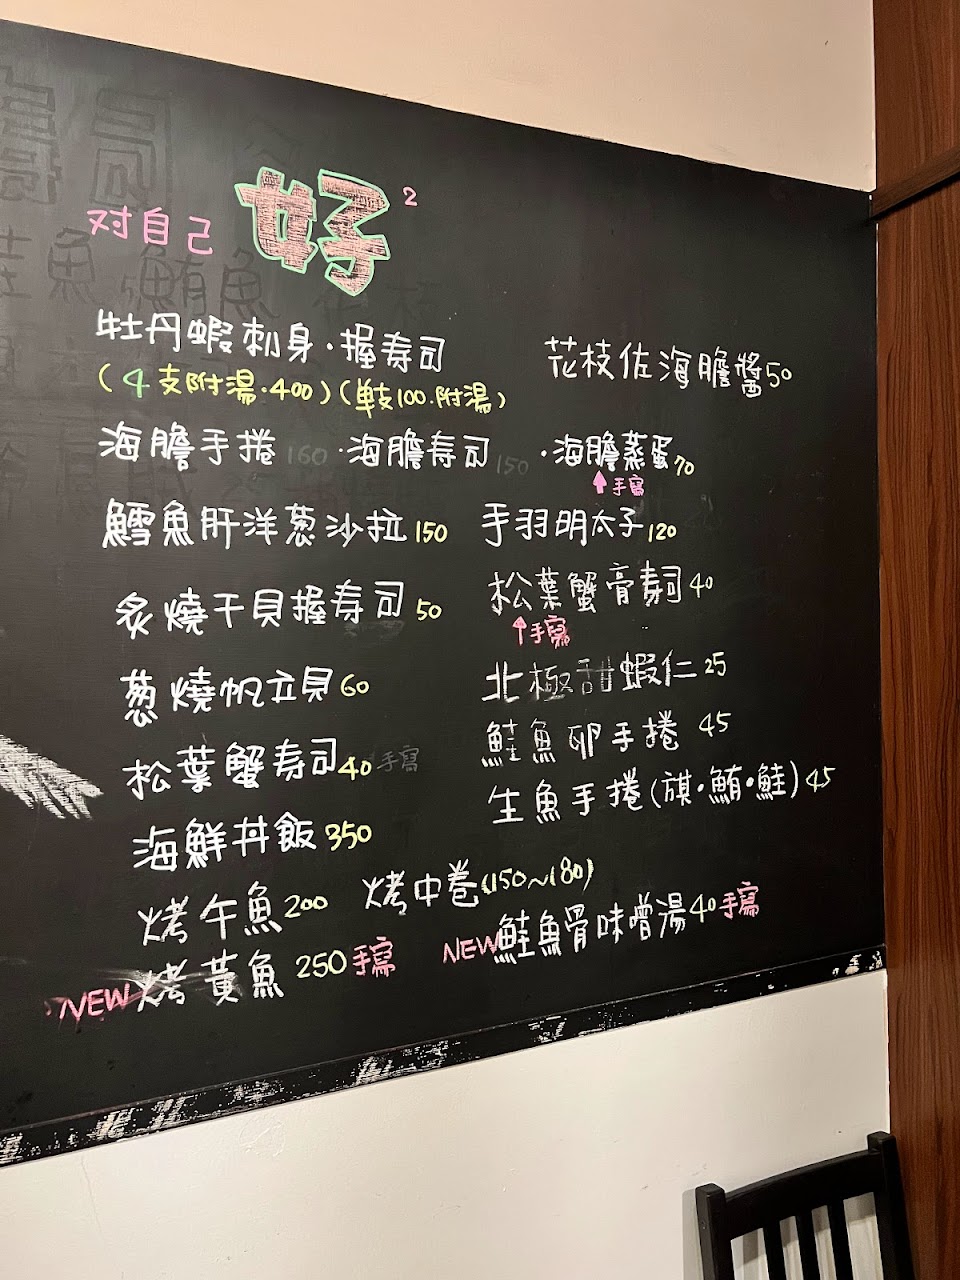 对自己 好²
牡丹蝦刺身·握寿司
(4支附湯·400)(単支100·附湯)
花枝佐海膽醬50
海膽手捲 160 ·海膽寿司 150 ·海膽蒸蛋70
手寫
鱈魚肝洋葱沙拉150
手羽明太子120
炙燒干貝握寿司50
松葉蟹膏寿司40
手寫
葱燒帆立貝60
北極甜蝦仁25
松葉蟹寿司40 手寫
鮭魚卵手捲 45
海鮮丼飯350
生魚手捲(旗·鮪·鮭)45
烤午魚200
烤中卷(150~180)
NEW烤黃魚 250手寫
NEW鮭魚骨味噌湯40手寫